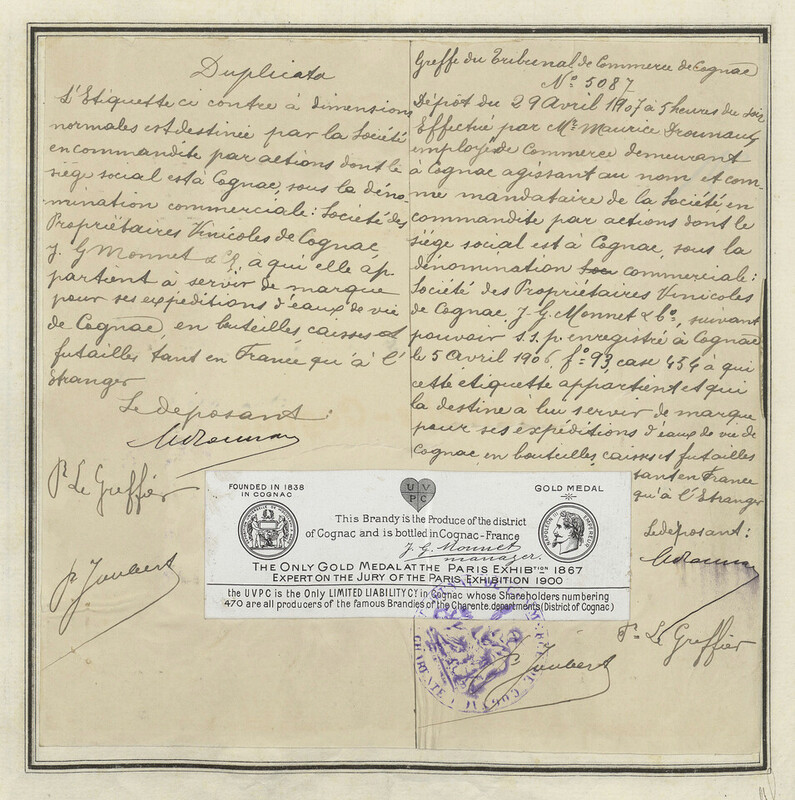 Duplicata
L'Etiquette ci contre à dimensions
normales est destinée par la Société
en commandite par actions dont le
siège social est à Cognac, sous la déno-
mination commerciale: Société des
Propriétaires Vinicoles de Cognac,
J. G Monnet & Cº, à qui elle ap-
partient à servir de marque
pour ses expéditions d'eaux de vie
de Cognac, en bouteilles caisses et
futailles tant en France qu'à l'
Etranger
Le déposant:
Pr Le Greffier
P. Joubert
Greffe du Tribunal de Commerce de Cognac
Nº 5087
Dépôt du 29 Avril 1907 à 5 heures du soir
Effectué par Mr Maurice
employé de Commerce demeurant
à Cognac agissant au nom et com-
me mandataire de la Société en
commandite par actions dont le
siège social est à Cognac, sous la
dénomination sou commerciale:
Société des Propriétaires Vinicoles
de Cognac, J. G. Monnet & Cº, suivant
pouvoir s.s.p. enregistré à Cognac
le 5 Avril 1906, fº 93, case 454 à qui
cette étiquette appartient et qui
la destine à lui servir de marque
pour ses expéditions d'eaux de vie de
Cognac en bouteilles caisses et futailles
tant en France
qu'à l'Etranger
Le déposant:
Pr Le Greffier
P. Joubert
FOUNDED IN 1838
IN COGNAC
U V
P C
GOLD MEDAL
NAPOLEON III EMPEREUR
This Brandy is the Produce of the district
of Cognac and is bottled in Cognac-France
J. G. Monnet
manager.
THE ONLY GOLD MEDAL AT THE PARIS EXHIBTION 1867
EXPERT ON THE JURY OF THE PARIS EXHIBITION 1900
the UVPC is the Only LIMITED LIABILITY CY in Cognac whose Shareholders numbering
470 are all producers of the famous Brandies of the Charente.departments (District of Cognac)